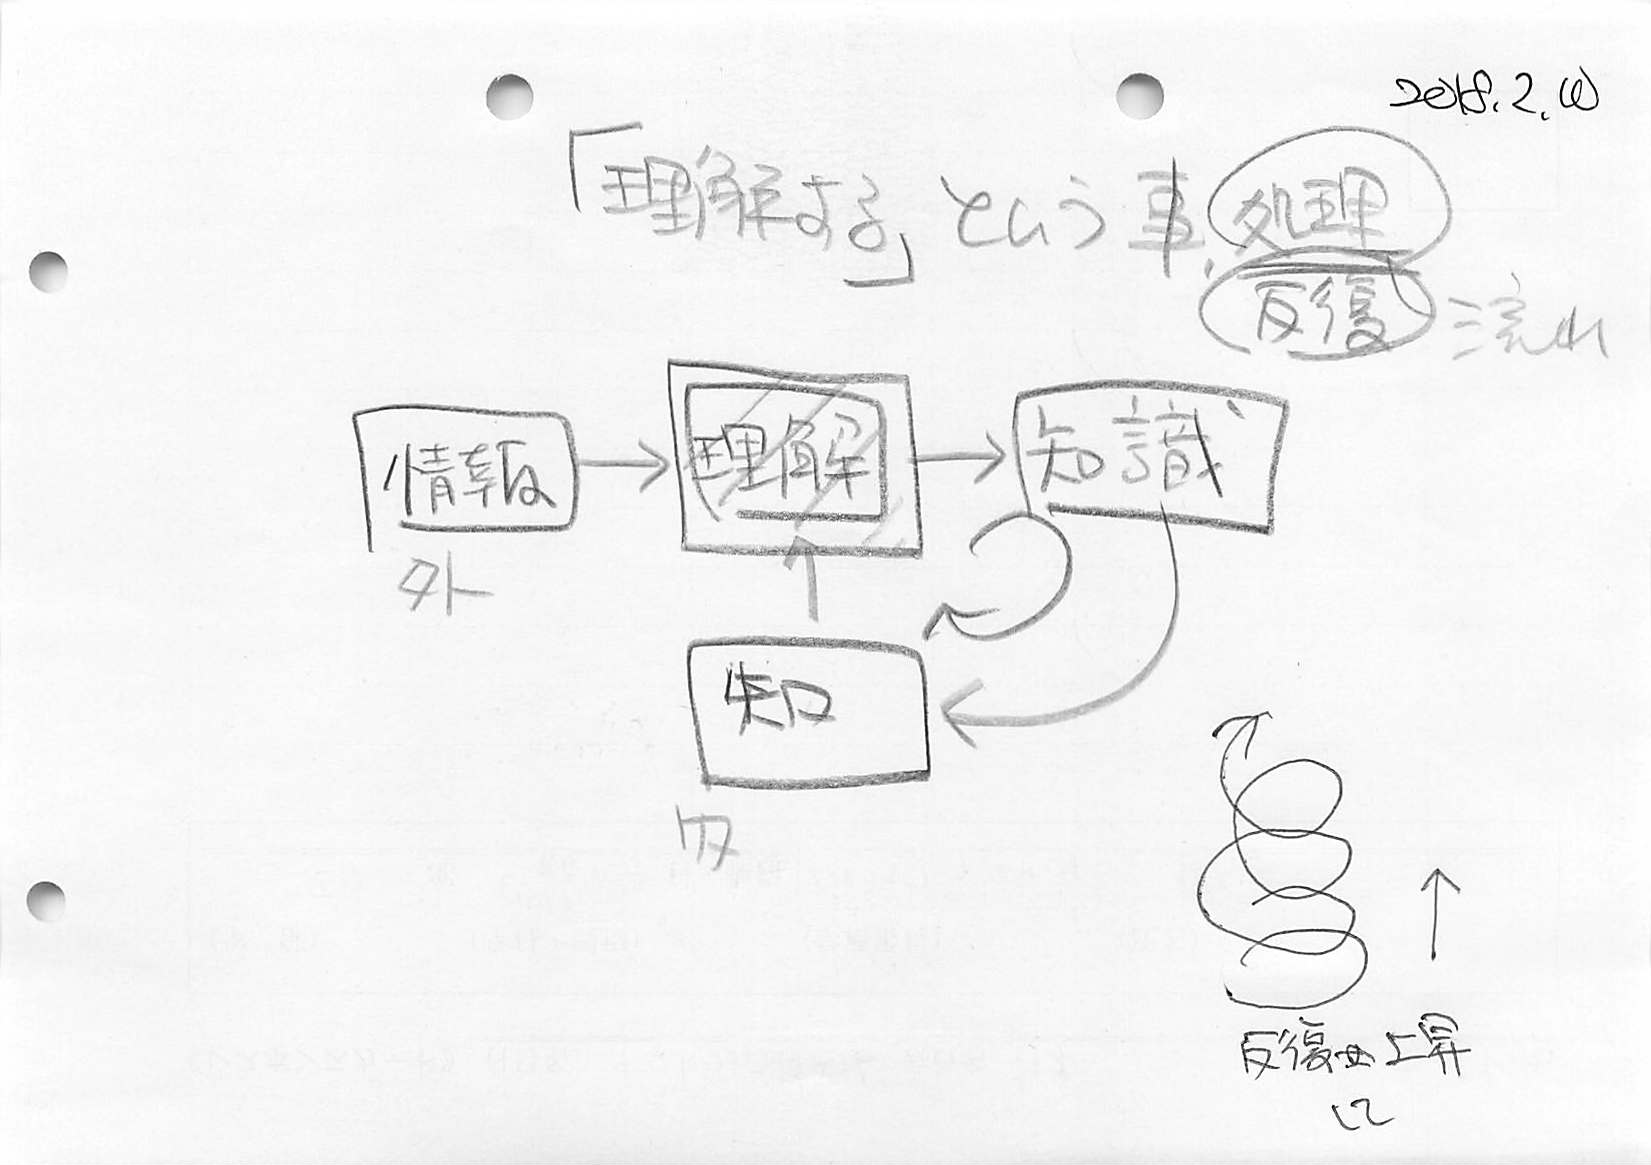 2018.2.
「理解する」という事、処理
反復 流れ
情報
理解
知識
外
知
内
反復 上昇
して